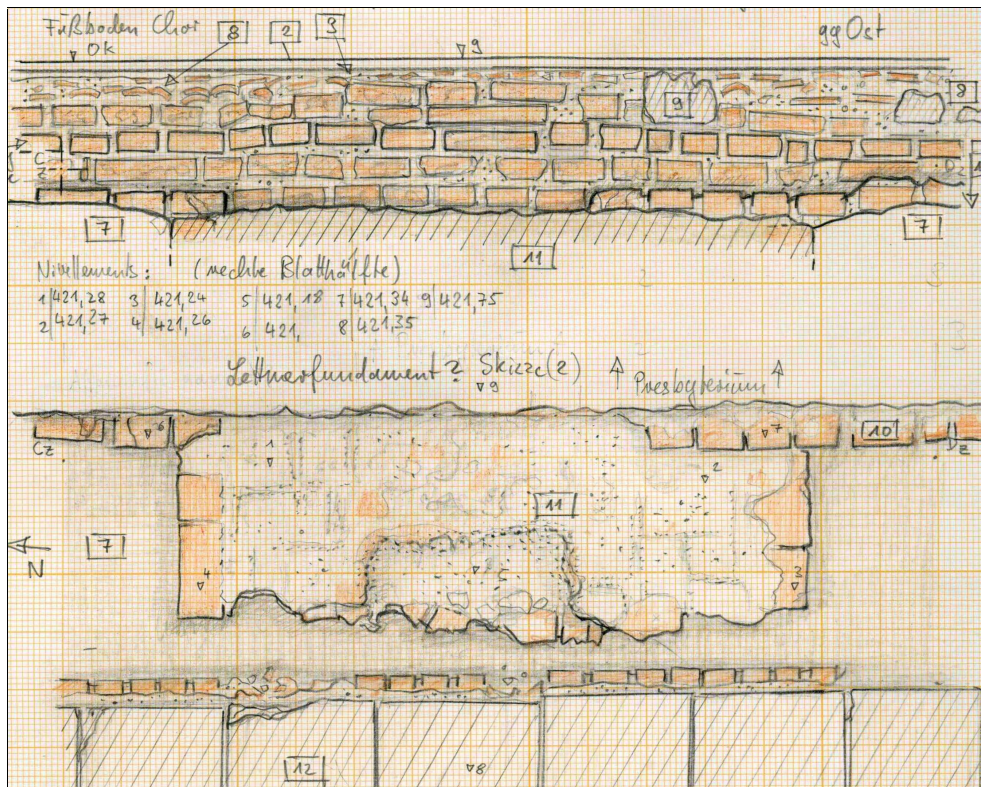 Fußboden Chor 8 2 3 gg Ost
OK 9
9 8
C
Z
7 11 7
Nivellements: (rechte Blatthälfte)
1 421,28 3 421,24 5 421,18 7 421,34 9 421,75
2 421,27 4 421,26 6 421, 8 421,35
Lettnerfundament? Skizze(2) Presbyterium
9
6 7 10
Cz 1 2 Dz
11
7
N 4 5 3
12 8